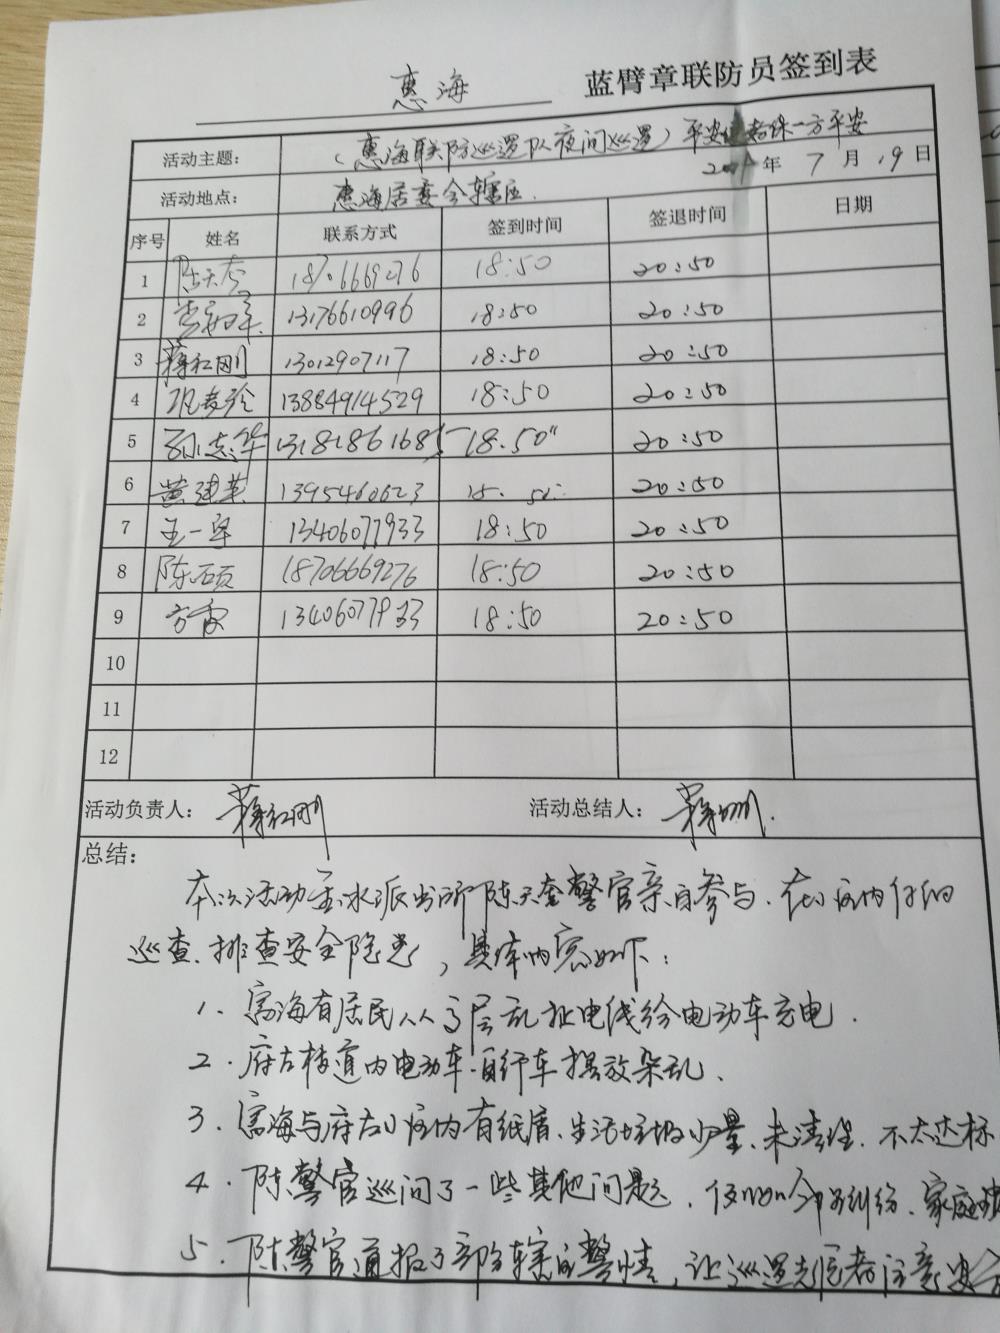 惠海 蓝臂章联防员签到表
活动主题： (惠海联防巡逻队夜间巡逻) 平安 一方平安
年 7 月 19 日
活动地点： 惠海居委会辖区.
序号 姓名 联系方式 签到时间 签退时间 日期
1 陈天奎 18706669276 18:50 20:50
2 13176610996 18:50 20:50
3 蒋红刚 13012907117 18:50 20:50
4 13884914529 18:50 20:50
5 孙志华 13181861685 18.50" 20:50
6 黄建英 20:50
7 王一平 13406077933 18:50 20:50
8 陈硕 18706669276 18:50 20:50
9 方家 13406077933 18:50 20:50
10
11
12
活动负责人： 蒋红刚 活动总结人： 蒋红刚.
总结：
本次活动 水派出所陈天奎警官亲自参与. 在小区内仔细
巡查、排查安全隐患, 具体内容如下:
1. 惠海有居民从高层乱扯电线给电动车充电.
2. 府左楼道内电动车.自行车摆放杂乱、
3. 惠海与府左小区内有纸屑、生活垃圾少量、未清理. 不太达标
4. 陈警官巡问了一些其他问题. 纠纷、家庭
5. 陈警官通报了部分辖区警情, 让巡逻志愿者注意